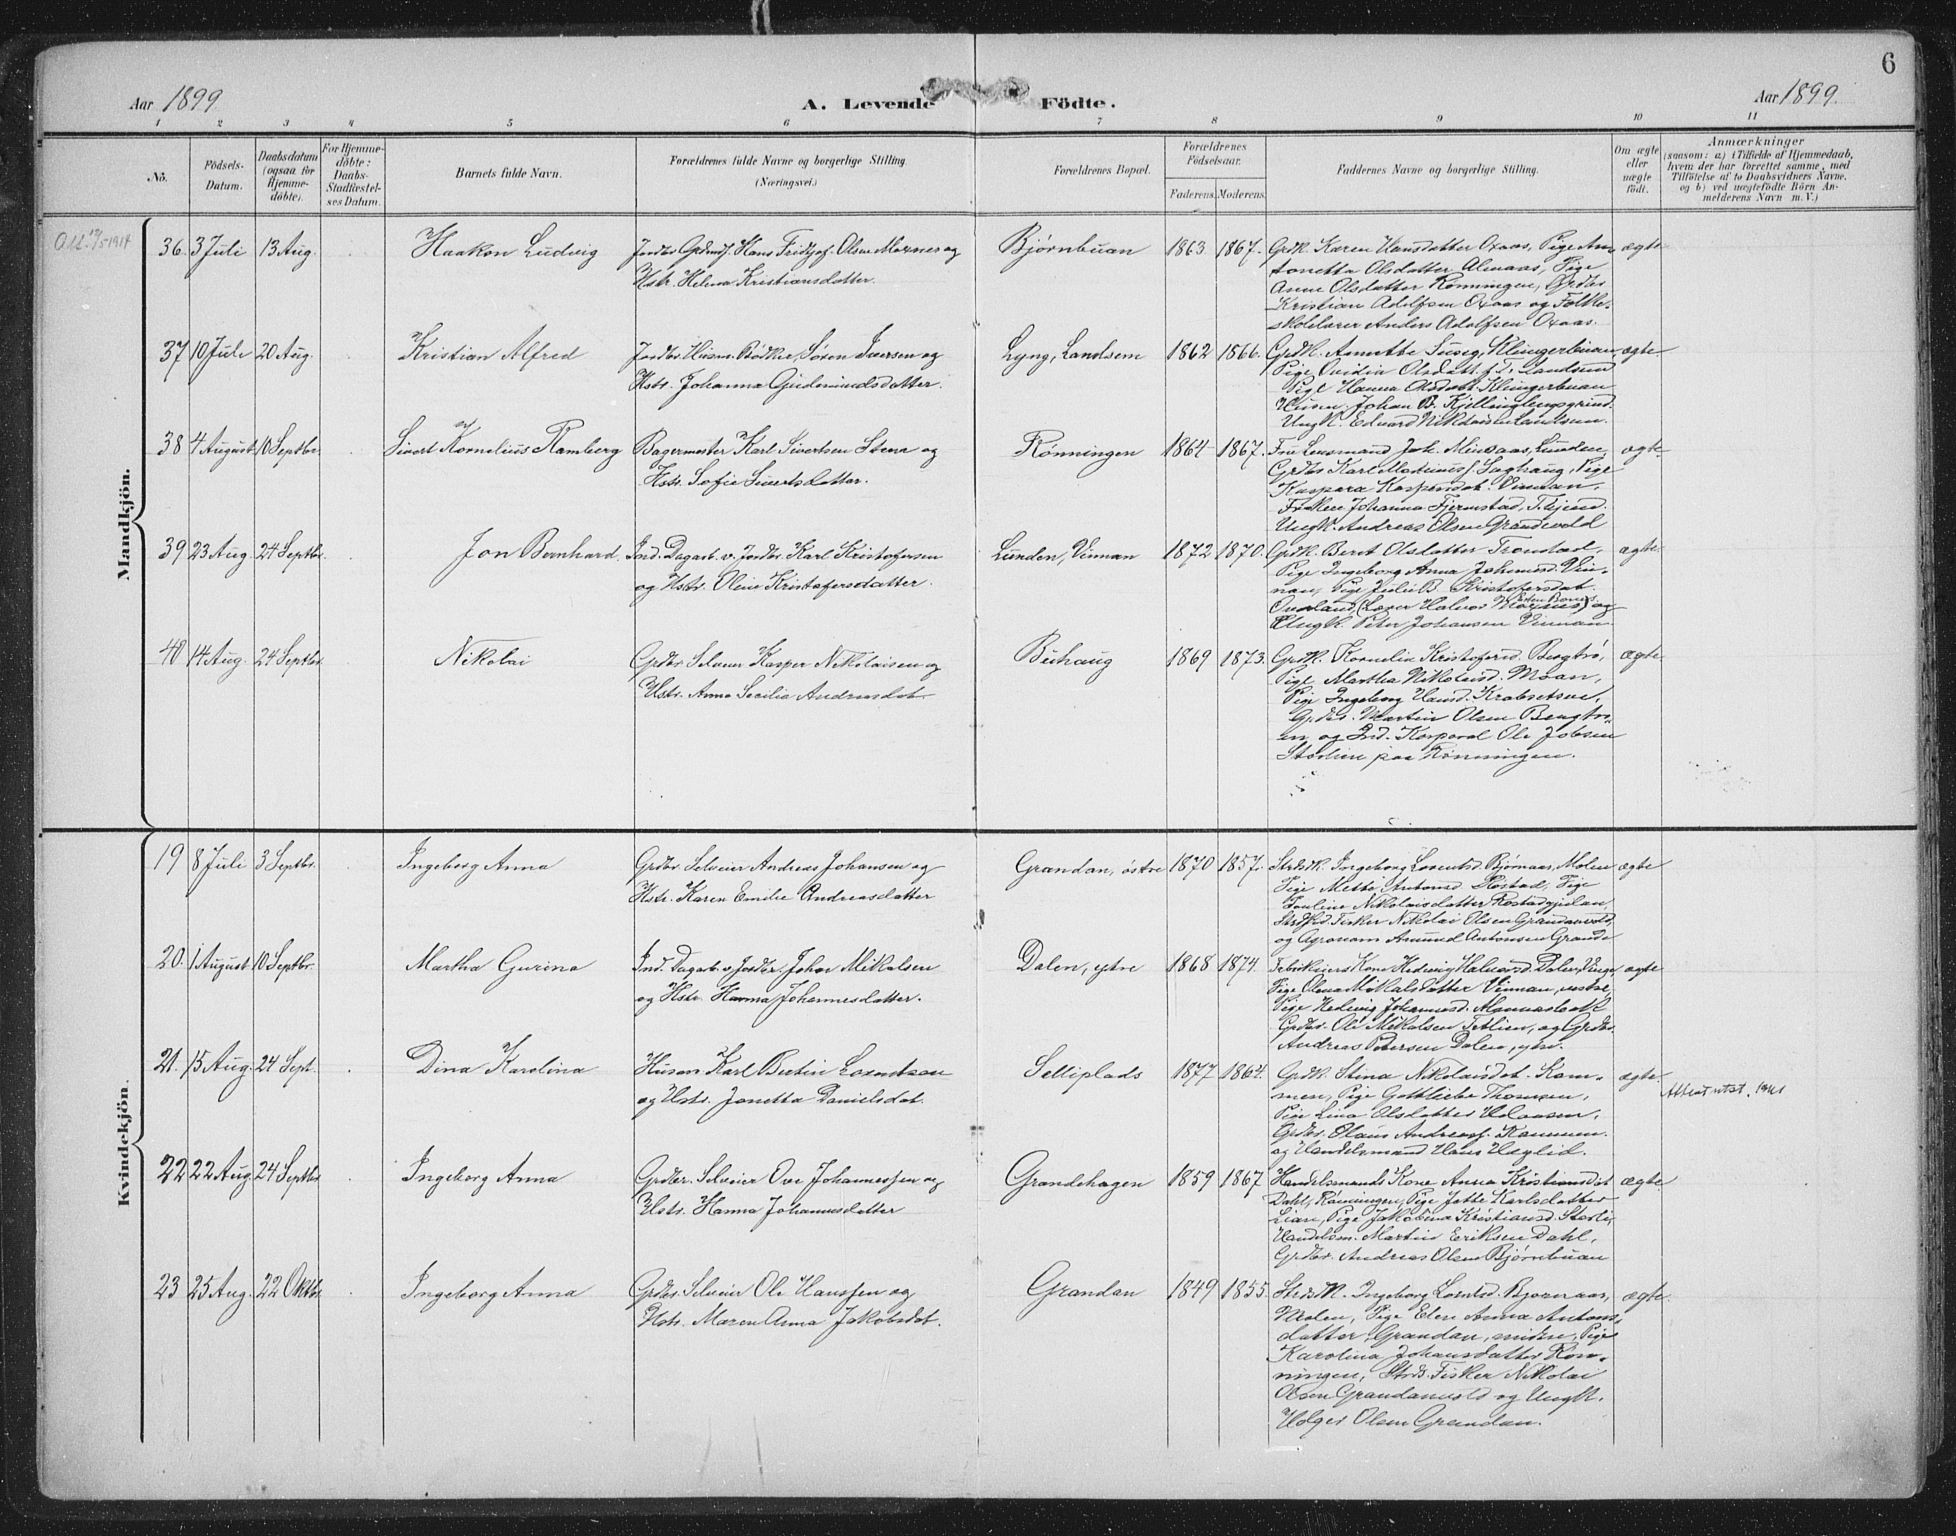 6
Aar 1899.
A. Levende Födte.
Aar 1899.
1 2 3 4 5 6 7 8 9 10 11
No.
Födsels-
Datum.
Daabsdatum
(ogsaa for
Hjemme-
döbte).
For Hjemme-
döbte:
Daabs-
Stadfæstel-
ses Datum.
Barnets fulde Navn.
Forældrenes fulde Navne og borgerlige Stilling
(Næringsvei.)
Forældrenes Bopæl.
Forældrenes
Födselsaar.
Faderens. Moderens.
Faddernes Navne og borgerlige Stilling.
Om ægte
eller
uægte
födt.
Anmærkninger
(saasom: a.) i Tilfælde af Hjemmedaab,
hvem der har forrettet samme, med
Tilföielse af to Daabsvidners Navne,
og b) ved uægtefödte Börn An-
melderens Navn m. V.)
Mandkjön.
36. 3 Juli 13 Aug. Haakon Ludvig
Hans Fridtjof Olsen Moxnes og
Hstr. Helena Kristiansdatter.
Bjørnbuan 1863 1867.
Grdk. Karen Hansdatter Oxaas, Pige An-
tonetta Olsdatter Almaas, Pige
Anne Olsdatter Rønningen, Grdbr
Kristian Adolfsen Oxaas og Folke-
skolelærer Anders Adolfsen Oxaas.
ægte
37 10 Juli 20 Aug. Kristian Alfred
Søren Iversen og
Hstr. Johanna Gudmundsdatter.
Lyng, Landsem 1862 1866.
Klingerbuan,
Pige Hanna Olsdat. Klingerbuan
ægte
38 4 August 10 Septbr. Sivert Kornelius Ramberg
Bagermester Karl Sivertsen Stene og
Hstr. Sofie Sivertsdatter.
Rønningen 1864 1867.
Ungk. Andreas Olsen Grandevold
ægte
39 23 Aug. 24 Septbr. Jon Bernhard
Ind. Dagarb. v. Jordbr. Karl Kristofersen
og Hstr. Oline Kristofersdatter.
Lunden, Vinnan 1872 1870.
Grdk. Beret Olsdatter Tronstad,
Pige Ingeborg Anna Vin-
nan, Pige Julie B. Kristofersdat.
Ungk. Peter Johansen Vinnan.
ægte
40 14 Aug. 24 Septbr. Nikolai
Grdbr. Selveier Kasper Nikolaisen og
Hstr. Anna Secilia Andreasdat.
Buhaug 1869 1873.
Grdk. Kornelia Kristofersd. Bergtrø,
Pige Martha Nikolaisd. Moan,
Pige Ingeborg Hansd.
Grdbr. Martin Olsen
og Ind. Korporal Ole Jobsen
paa Rønningen.
ægte
Kvindekjön.
19 8 Juli 3 Septbr. Ingeborg Anna
Grdbr. Selveier Andreas Johansen og
Hstr. Karen Emilie Andreasdatter
Grandan, østre 1870 1857.
Ingeborg Lorentsd. Bjørnaas, Molen
Pige Mette Antonsd. Rostad, Pige
Pauline Nikolaisdatter
Fisker Nikolai Olsen Grandanvold,
og Agronom Amund Antonsen Grande
ægte
20. 1 August 10 Septbr. Martha Gurina
Ind. Dagarb. v. Jordbr. Johan Mikalsen
og Hstr. Hanna Johannesdatter.
Dalen, ytre 1868 1874.
Kone Hedevig Halvorsd. Dalen,
Pige Olena Mikalsdatter Vinnan, vestre,
Pige Hedevig Johannesd.
Grdbr. Ole Mikalsen Tetlien, og Grdbr.
Andreas Petersen Dalen, ytre.
ægte
21. 15 Aug. 24 Sept. Dina Karolina
Husm. Karl Bertin Lorentsen
og Hstr. Jonetta Danielsdat.
Selliplads 1877 1864.
Grdk. Stina Nikolaisdat. Kam-
men, Pige Gottliebe Thomsen,
Pige Lina Olsdatter
Grdbr. Olaus Andreass. Kammen
og Handelsmand Hans Heglid.
ægte.
22 22 Aug 24 Septbr. Ingeborg Anna
Grdbr. Selveier Ove Johannessen og
Hstr. Hanna Johannesdatter
Grandehagen 1859 1867
Handelsmands Kone Anna Kristiansdat
Dahl, Rønningen, Pige Jette Karlsdatter
Lian, Pige Jakobina Kristiansd.
Handelsm. Martin Eriksen Dahl,
Grdbr. Andreas Olsen Bjørnbuan
ægte.
23 25 Aug. 22 Oktbr. Ingeborg Anna
Grdbr. Selveier Ole Hanssen og
Hstr. Maren Anna Jakobsdat.
Grandan 1849 1855.
Ingeborg Bjørnaas,
Molen, Pige Elen Anna Antons-
datter Grandan, Pige
Karolina Johansdatter Røn-
ningen, Fisker Nikolai
Olsen Grandanvold og Ungk.
Holger Olsen Grandan.
ægte.